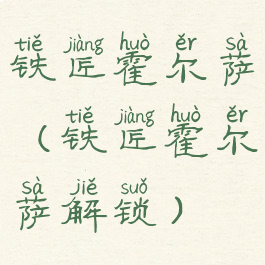 tiě jiàng huò ěr sà
铁匠霍尔萨
tiě jiàng huò ěr
（铁匠霍尔
sà jiě suǒ
萨解锁）